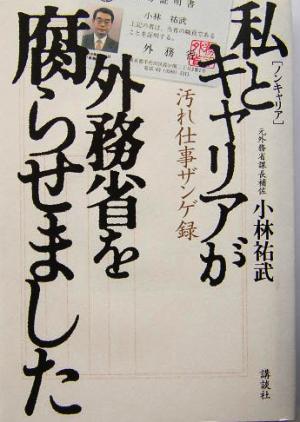 小林 祐武
上記の者は、当省の職員である
ことを証明する。
外務
私と
[ノンキャリア]
キャリアが
外務省を
腐らせました
汚れ仕事ザンゲ録
元外務省課長補佐
小林祐武
講談社